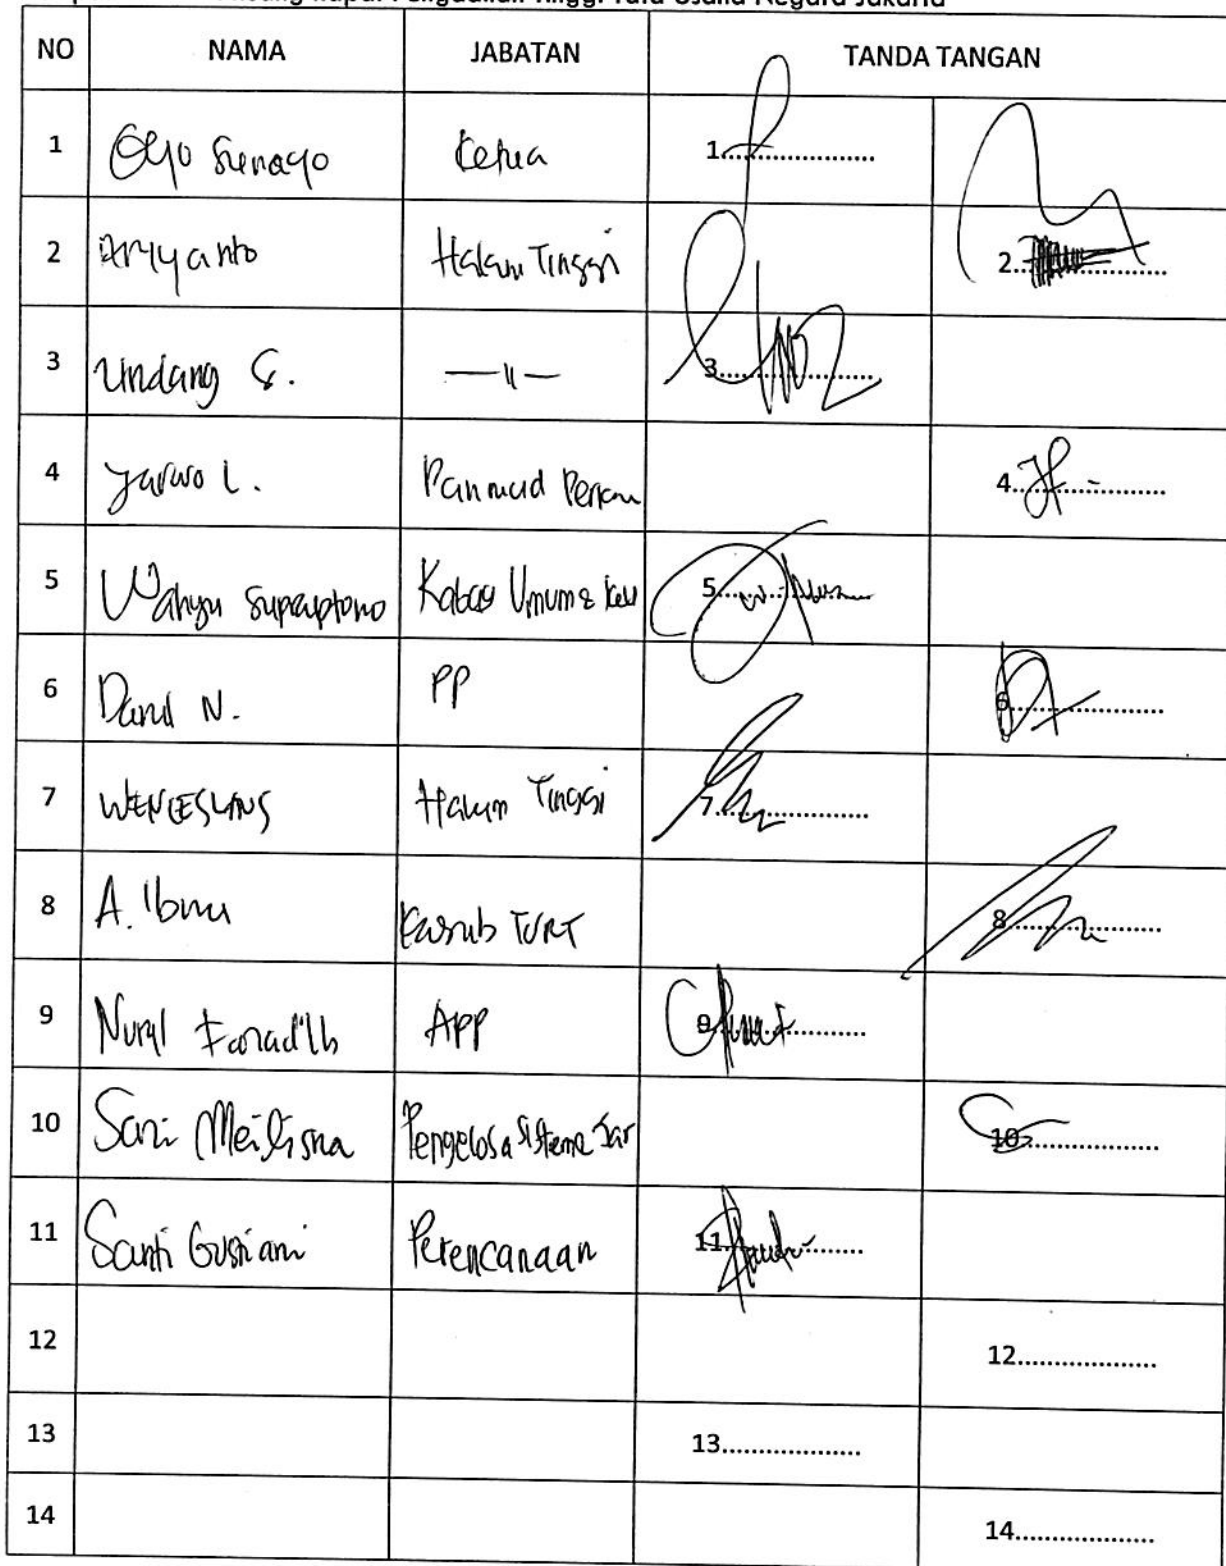 Rapat Pengadilan Tinggi Tata Usaha Negara Jakarta
NO NAMA JABATAN TANDA TANGAN
1 Oyo Sunaryo Ketua 1..................
2 Ariyanto Hakim Tinggi 2..................
3 Undang S. —〃— 3..................
4 Jarwo L. Panmud Perkara 4..................
5 Wahyu Supraptono Kabag Umum & Keu 5..................
6 Danil N. PP 6..................
7 WENCESLAUS Hakim Tinggi 7..................
8 A. Ibnu Kasub TURT 8..................
9 Nurul APP 9..................
10 Sari Pengelola Sistem Jar 10..................
11 Santi Gustiani Perencanaan 11..................
12 12..................
13 13..................
14 14..................